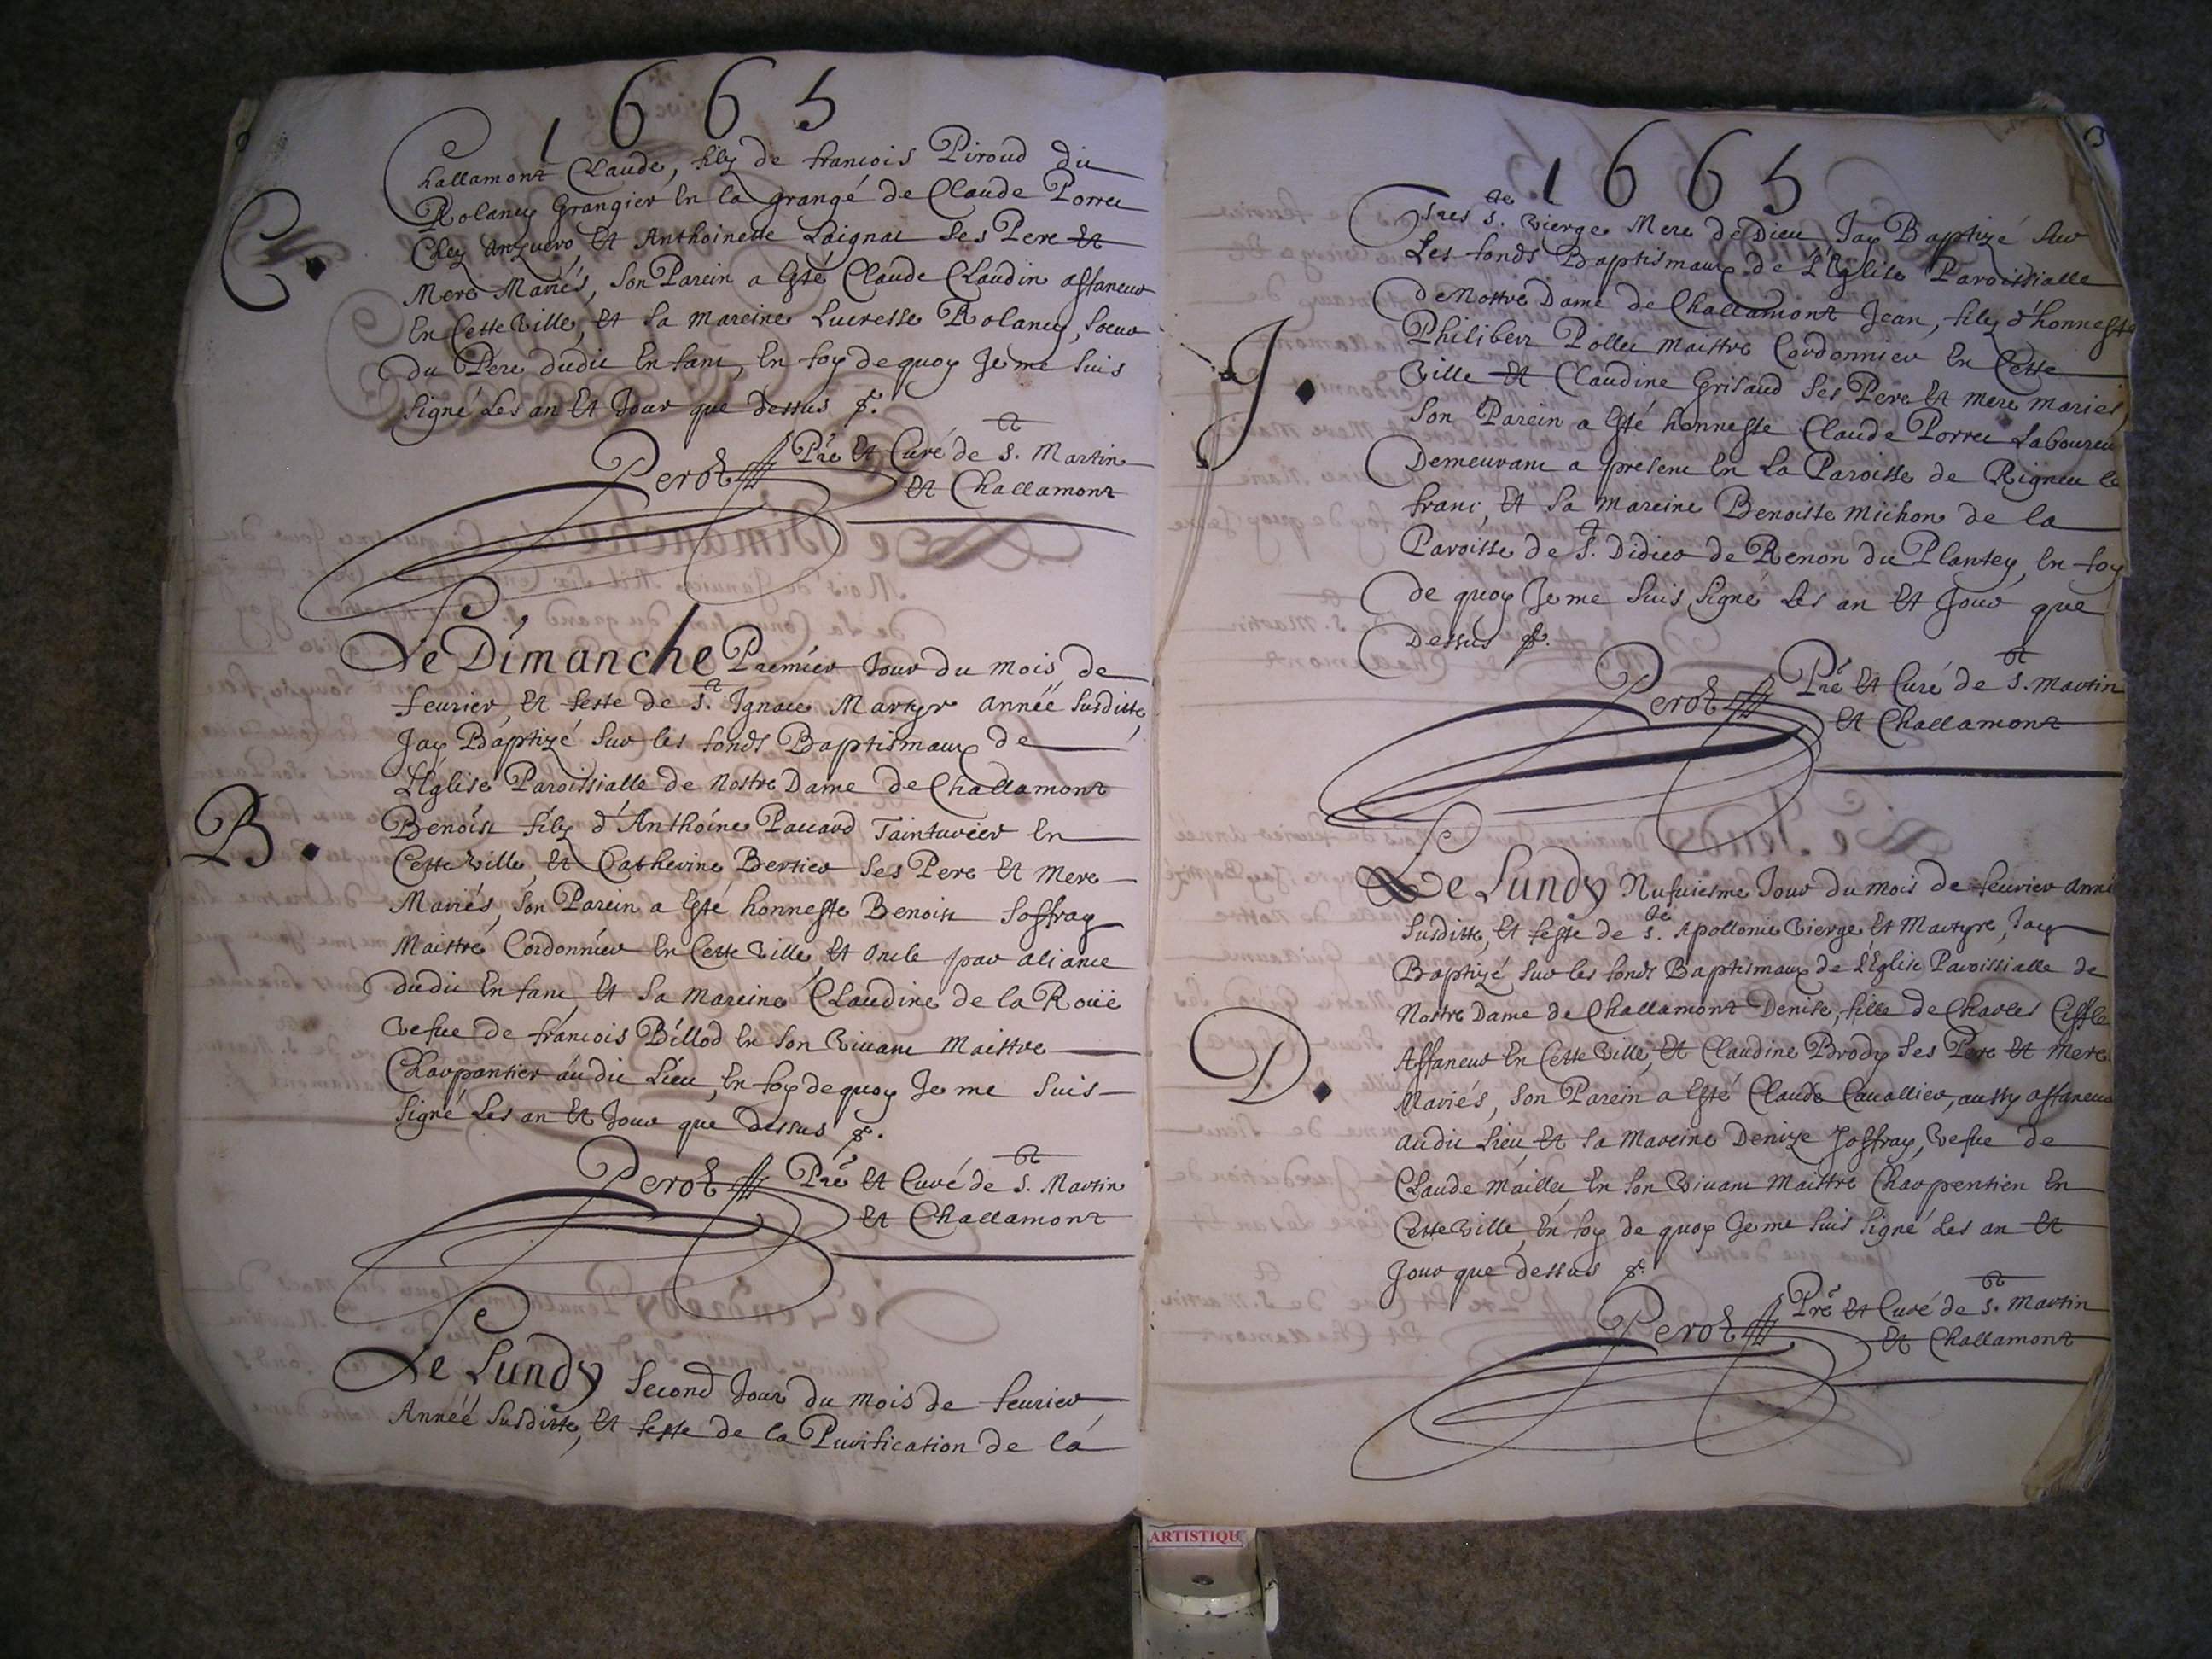 1665
Challamont Claude, filz de francois Piroud dit
Rolancy Grangier En la grange de Claude Porret
Chez Anzuero, Et Anthoinette Laignat ses Pere Et
C.
Mere Mariés, Son Parein a Esté Claude Claudin affaneur
En Cette Ville, Et sa mareine Lucresse Rolancy, soeur
du Pere dudit Enfant, En foy de quoy Je me suis
signé Les an Et Jour que dessus &.
Perot Pre Et Curé de St. Martin
Et Challamont
Le Dimanche Premier Jour du mois de
feurier, Et feste de St. Ignace Martyr année susditte,
Jay Baptizé sur les fonds Baptismaux de
L'Église Paroissialle de Nostre Dame de Challamont
B.
Benoist filz d'Anthoine Paccard Tainturier En
Cette Ville, Et Catherine Bertier ses Pere Et mere
Mariés, Son Parein a Esté honneste Benoist Joffray
Maistre Cordonnier En Cette Ville, Et oncle par aliance
dudit Enfant, Et sa Mareine Claudine de la Roüe
Vefue de francois Billod En son Viuant Maistre
Charpantier audit Lieu, En foy de quoy Je me suis
signé Les an Et Jour que dessus &.
Perot Pre Et Curé de St. Martin
Et Challamont
Le Lundy second Jour du mois de feurier
Année susditte, Et feste de la Purification de la
1665
Tres Ste. Vierge Mere de Dieu Jay Baptizé sur
Les fonds Baptismaux de L'Eglise Paroissialle
de Nostre Dame de Challamont Jean, filz d'honneste
J.
Philibert Pollet maistre Cordonnier En Cette
Ville Et Claudine Grisaud ses Pere Et mere mariés,
son Parein a Esté honneste Claude Porret Laboureur
Demeurant a present En La Paroisse de Rigneu le
franc, Et sa mareine Benoiste Michon de la
Paroisse de St. Didier de Renon du Plantey, En foy
de quoy Je me suis signé Les an Et Jour que
Dessus &.
Perot Pre Et Curé de St. Martin
Et Challamont
Le Lundy Nufuiesme Jour du mois de feurier année
susditte, Et feste de Ste. Apollonie Vierge Et Martyre, Jay
Baptizé sur les fonds Baptismaux de L'Eglise Paroissialle de
Nostre Dame de Challamont Denise, fille de Charles Ciffle
D.
Affaneur En Cette Ville, Et Claudine Brody ses Pere Et mere
Mariés, son Parein a Esté Claude Cauallier, aussy affaneur
audit Lieu Et sa Mareine Denize Joffray, Vefue de
Claude Maillet En son Viuant Maistre Charpentien En
Cette Ville, En foy de quoy Je me suis signé Les an Et
Jour que dessus &.
Perot Pre Et Curé de St. Martin
Et Challamont
ARTISTIQU